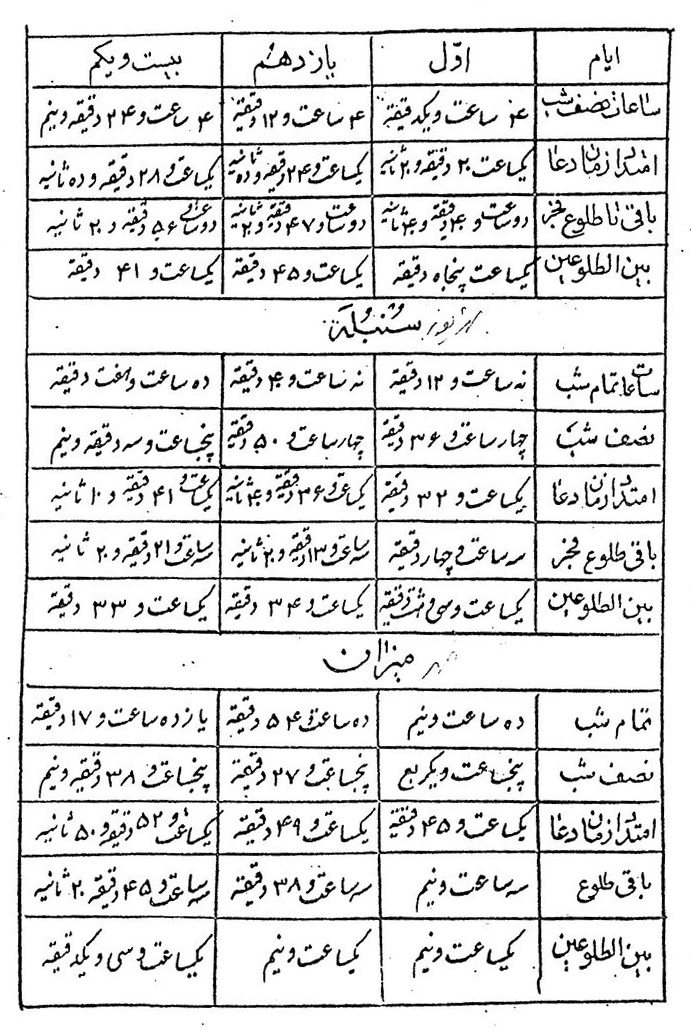 ایام اوّل یازدهم بیست و یکم
ساعات نصف شب ۴ ساعت و یکدقیقه ۴ ساعت و ۱۲ دقیقه ۴ ساعت و ۲۴ دقیقه و نیم
امتداد زمان دعا یکساعت ۲۰ دقیقه و ۲۰ ثانیه یکساعت و ۲۴ دقیقه و ده ثانیه یکساعت و ۲۸ دقیقه و ده ثانیه
باقی تا طلوع فجر دو ساعت و ۴۰ دقیقه و ۴۰ ثانیه دو ساعت و ۴۷ دقیقه و ثانیه دو ساعت و ۵۶ دقیقه و ۲۰ ثانیه
بین الطلوعین یکساعت پنجاه دقیقه یکساعت و ۴۵ دقیقه یکساعت و ۴۱ دقیقه
سُنبُله
ساعات تمام شب نه ساعت و ۱۲ دقیقه نه ساعت و ۴۰ دقیقه ده ساعت و هفت دقیقه
نصف شب چهار ساعت و ۳۶ دقیقه چهار ساعت و ۵۰ دقیقه پنجساعت و سه دقیقه و نیم
امتداد زمان دعا یکساعت و ۳۲ دقیقه یکساعت و ۳۶ دقیقه و ۴۰ ثانیه یکساعت و ۴۱ دقیقه و ۱۰ ثانیه
باقی طلوع فجر سه ساعت و چهار دقیقه سه ساعت و ۱۳ دقیقه و ۲۰ ثانیه سه ساعت و ۲۱ دقیقه و ۲۰ ثانیه
بین الطلوعین یکساعت و سی و هشت دقیقه یکساعت و ۳۴ دقیقه یکساعت و ۳۳ دقیقه
میزان
تمام شب ده ساعت و نیم ده ساعت و ۵۴ دقیقه یازده ساعت و ۱۷ دقیقه
نصف شب پنجساعت و یکربع پنجساعت و ۲۷ دقیقه پنجساعت و ۳۸ دقیقه و نیم
امتداد زمان دعا یکساعت و ۴۵ دقیقه یکساعت و ۴۹ دقیقه یکساعت و ۵۲ دقیقه و ۵۰ ثانیه
باقی طلوع سه ساعت و نیم سه ساعت و ۳۸ دقیقه سه ساعت و ۴۵ دقیقه ۲۰ ثانیه
بین الطلوعین یکساعت و نیم یکساعت و نیم یکساعت و سی و یکدقیقه